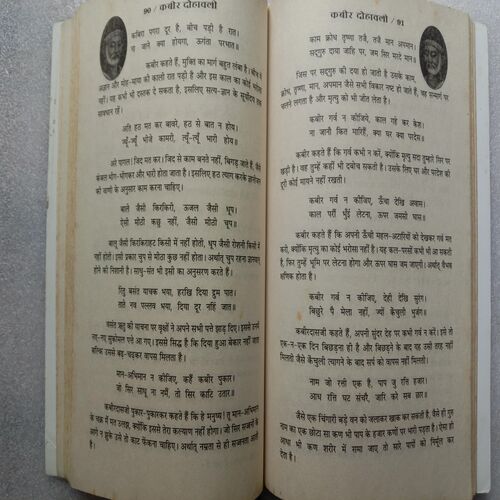 90 / कबीर दोहावली
कबिरा पगरा दूर है, बीच पड़ी है रात।
ना जाने क्या होयगा, ऊगंता परभात॥
कबीर कहते हैं, मुक्ति का मार्ग बहुत लंबा है। बीच में
अज्ञान और मोह-माया की काली रात पड़ी है और इस काल का कोई भरोसा
नहीं। यह कभी भी दस्तक दे सकता है, इसलिए सत्य-ज्ञान के सूर्योदय तक
सावधान रहें।
अति हठ मत कर बावरे, हठ से बात न होय।
ज्यूँ-ज्यूँ भीजे कामरी, त्यूँ-त्यूँ भारी होय॥
अरे पागल! जिद मत कर। जिद से काम बनते नहीं, बिगड़ जाते हैं, जैसे
कंबल भीग-भीगकर और भारी होता जाता है। इसलिए हठ त्याग करके
की वाणी के अनुसार काम करना चाहिए।
बाले जैसी किरकिरी, ऊजल जैसी धूप।
ऐसी मीठी कछु नहीं, जैसी मीठी चूप॥
बालू जैसी किरकिराहट किसी में नहीं होती, धूप जैसी रोशनी किसी में
नहीं होती। इसी प्रकार चुप से मीठा कुछ नहीं होता। अर्थात् चुप रहना ज्ञानवान्
होने की निशानी है। साधु-संत भी इसी का अनुसरण करते हैं।
रितु बसंत याचक भया, हरखि दिया द्रुम पात।
ताते नव पल्लव भया, दिया दूर नहिं जात॥
वसंत ऋतु की याचना पर वृक्षों ने अपने सभी पत्ते झाड़ दिए। इससे उनमें
नए-नए सुकोमल पत्ते आ गए। इससे सिद्ध है कि दिया हुआ बेकार नहीं जाता
बल्कि सबसे बढ़-चढ़कर वापस मिलता है।
मान-अभिमान न कीजिए, कहैं कबीर पुकार।
जो सिर साधू ना नमैं, तो सिर काटि उतार॥
कबीरदासजी पुकार-पुकारकर कहते हैं कि हे मनुष्य! तू मान-अभिमान
के चक्र में मत उलझ, क्योंकि इससे तेरा कल्याण नहीं होगा। जो सिर सज्जनों के
आगे न झुके उसे तो काट फेंकना चाहिए। अर्थात् नम्रता से ही सज्जनता आती
है।
कबीर दोहावली / 91
काम क्रोध तृष्णा तजै, तजै मान अपमान।
सद्गुरु दाया जाहि पर, जम सिर मरदे मान॥
जिस पर सद्गुरु की दया हो जाती है उसके काम,
क्रोध, तृष्णा, मान, अपमान जैसे सभी विकार नष्ट हो जाते हैं, वह सन्मार्ग पर
चलने लगता है और मृत्यु को भी जीत लेता है।
कबीर गर्व न कीजिए, काल गहे कर केस।
ना जानौ कित मारिहै, क्या घर क्या परदेस॥
कबीर कहते हैं कि गर्व कभी न करें, क्योंकि मृत्यु सदा तुम्हारे सिर पर
खड़ी है। वह तुम्हें कहीं भी दबोच सकती है। उसके लिए घर और परदेश की
दूरी कोई मायने नहीं रखती।
कबीर गर्व न कीजिए, ऊँचा देखि अवास।
काल परौं भुँइ लेटना, ऊपर जमसी घास॥
कबीर कहते हैं कि अपनी ऊँची महल-अटारियों को देखकर गर्व मत
करो, क्योंकि मृत्यु का कोई भरोसा नहीं है। यह कल-परसों कभी भी आ सकती
है, फिर तुम्हें भूमि पर लेटना होगा और ऊपर घास जम जाएगी। अर्थात् वैभव
क्षणिक होता है।
कबीर गर्व न कीजिए, देही देखि सुरंग।
बिछुरे पै मेला नहीं, ज्यों केचुली भुजंग॥
कबीरदासजी कहते हैं, अपनी सुंदर देह पर कभी गर्व न करें। इसे तो
एक-न-एक दिन बिछड़ना ही है और बिछड़ने के बाद यह उसी तरह नहीं
मिलती जैसे केंचुली त्यागने के बाद सर्प को वापस नहीं मिलती।
नाम जो रत्ती एक है, पाप जु रत्ति हजार।
आध रत्ति घट संचरै, जारि करे सब छार॥
जैसे एक चिंगारी बड़े वन को जलाकर खाक कर सकती है, वैसे ही गुरु
नाम का एक छोटा सा कण भी पाप के हजार कणों पर भारी पड़ता है। ऐसा ही
आधा भी कण शरीर में समा जाए तो सारे पापों को निर्मूल कर
देता है।